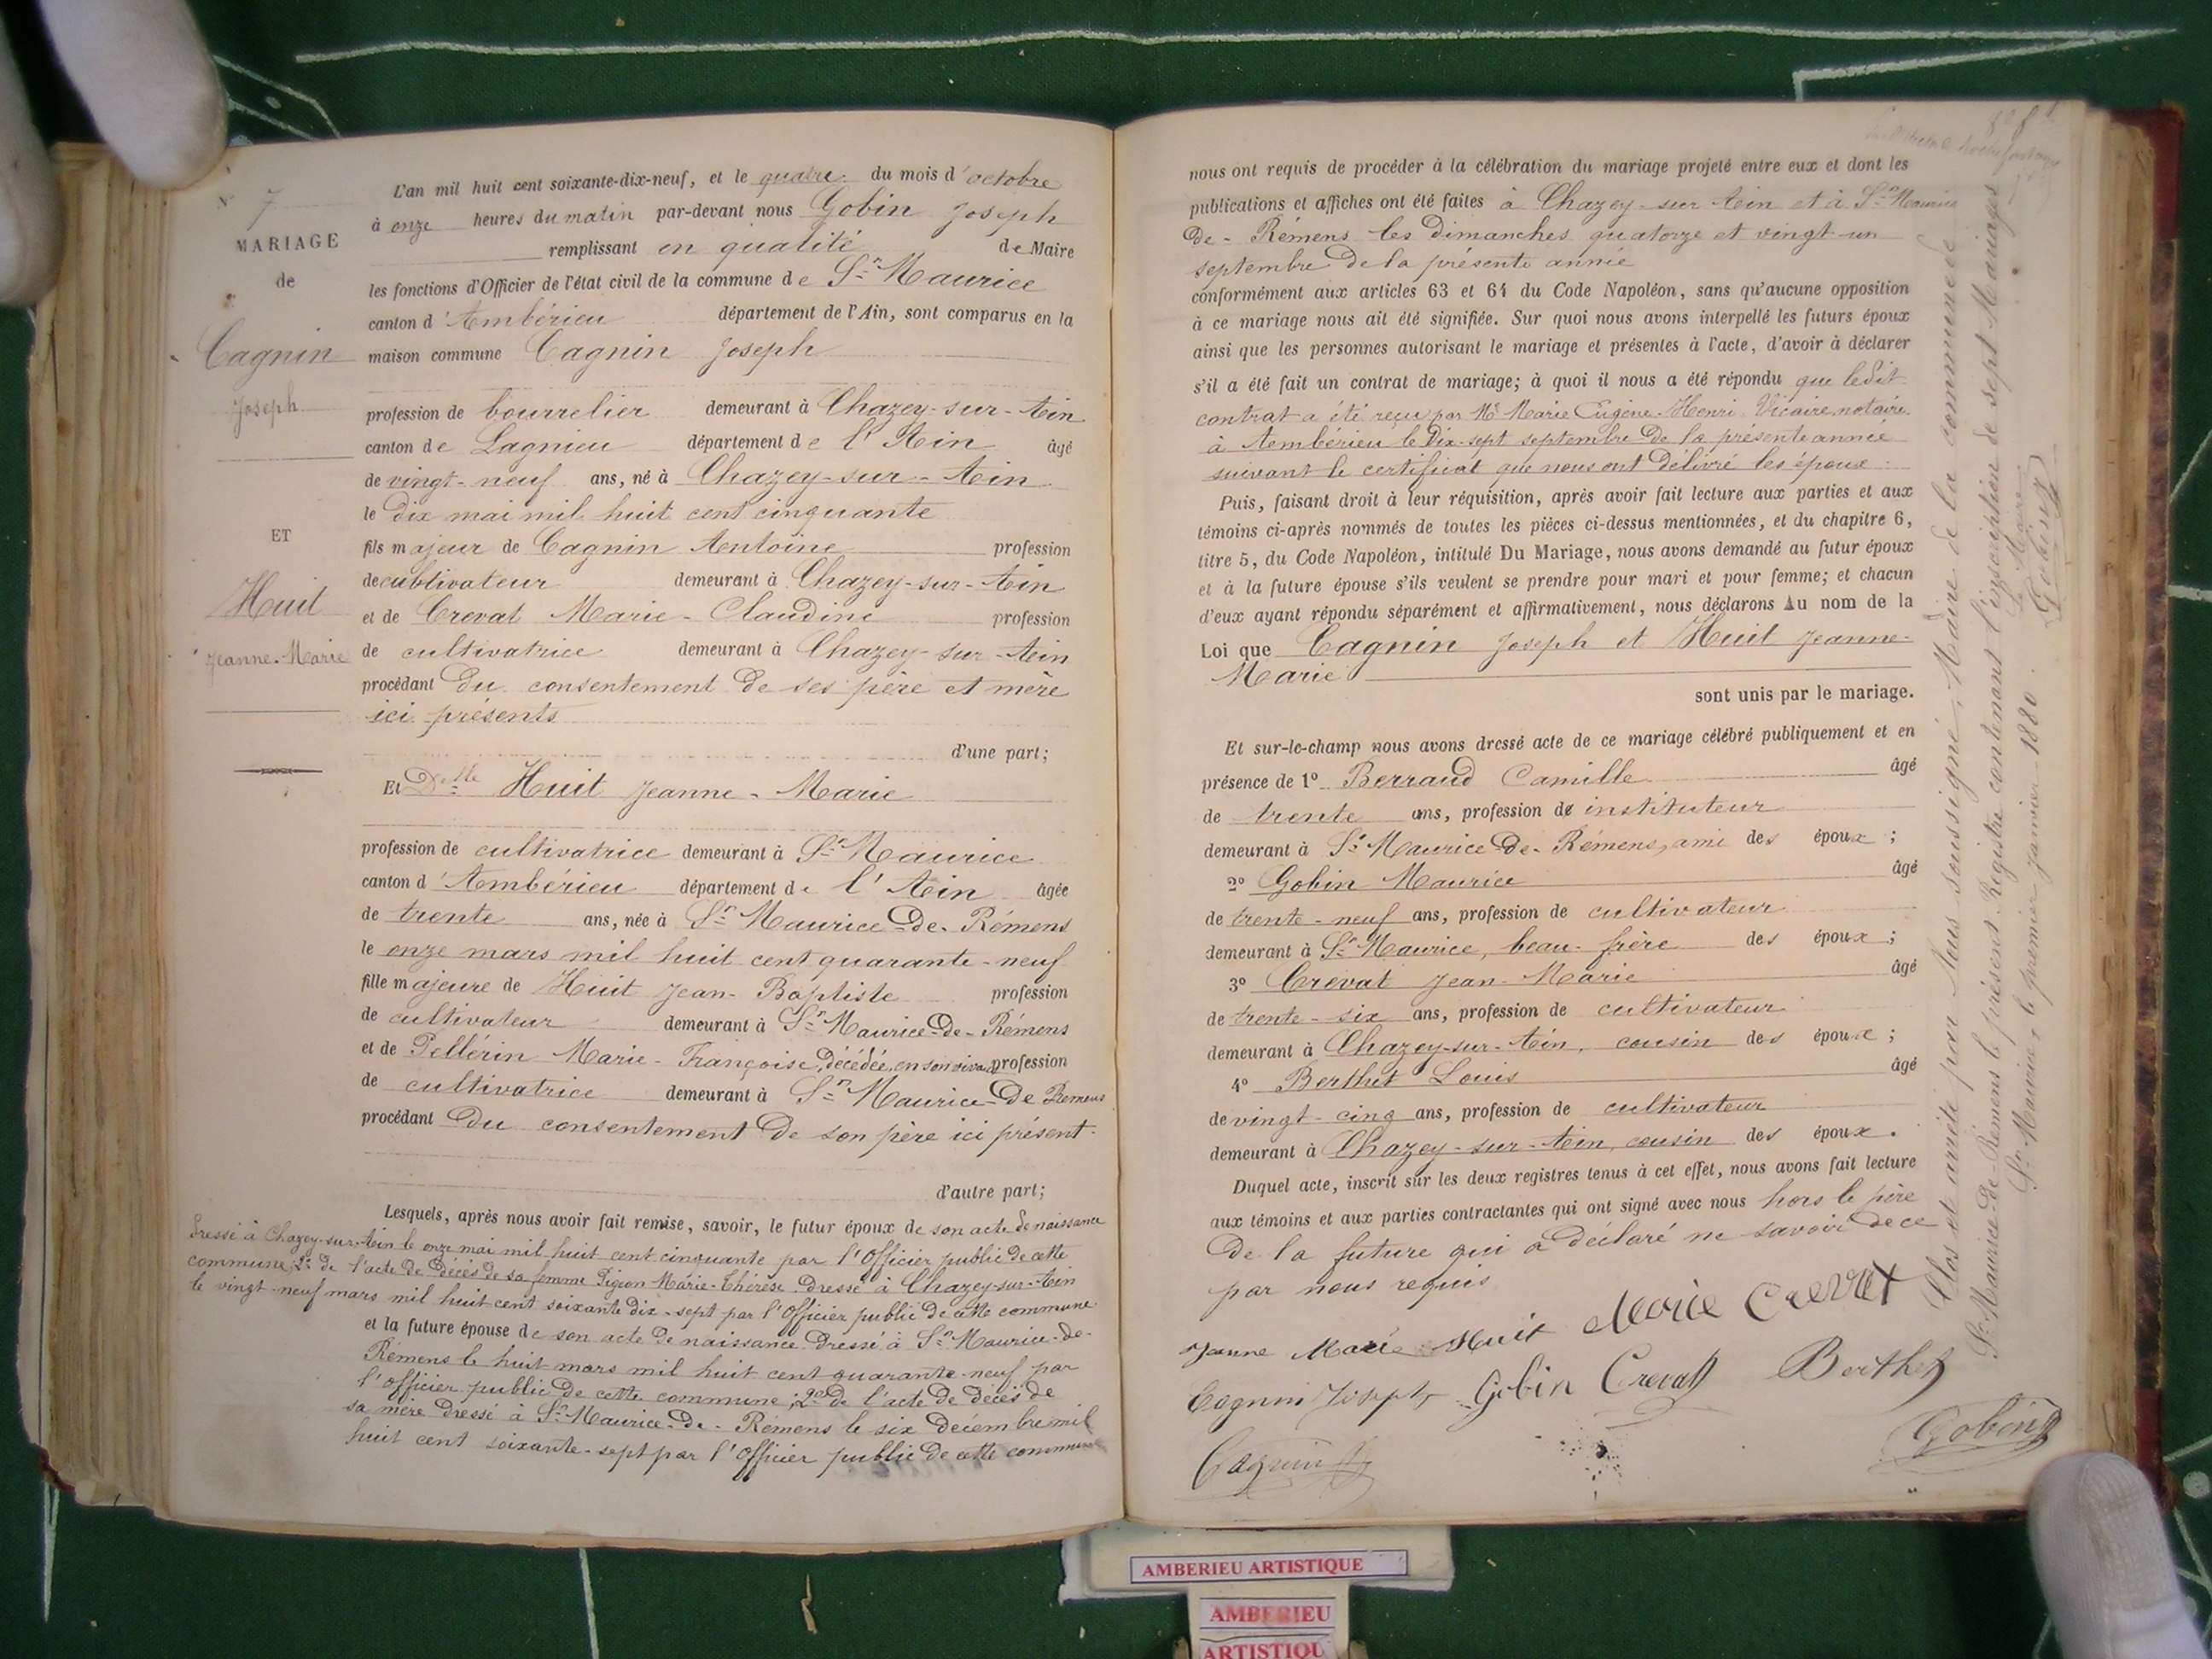 N° 7
MARIAGE
de
Cagnin
Joseph
ET
Huit
Jeanne-Marie
L'an mil huit cent soixante-dix-neuf, et le quatre du mois d'octobre
à onze heures du matin par-devant nous Gobin Joseph
remplissant en qualité de Maire
les fonctions d'Officier de l'état civil de la commune de St Maurice
canton d'Ambérieu département de l'Ain, sont comparus en la
maison commune Cagnin Joseph
profession de bourrelier demeurant à Chazey-sur-Ain
canton de Lagnieu département de l'Ain âgé
de vingt-neuf ans, né à Chazey-sur-Ain
le dix mai mil huit cent cinquante
fils majeur de Cagnin Antoine profession
de cultivateur demeurant à Chazey-sur-Ain
et de Creval Marie-Claudine profession
de cultivatrice demeurant à Chazey-sur-Ain
procédant du consentement de ses père et mère
ici présents
d'une part;
Et Delle Huit Jeanne-Marie
profession de cultivatrice demeurant à St Maurice
canton d'Ambérieu département de l'Ain âgée
de trente ans, née à St Maurice-de-Rémens
le onze mars mil huit cent quarante-neuf
fille majeure de Huit Jean-Baptiste profession
de cultivateur demeurant à St Maurice-de-Rémens
et de Pellérin Marie-Françoise, décédée, en son vivant profession
de cultivatrice demeurant à St Maurice-de Remens
procédant du consentement de son père ici présent-
d'autre part;
Lesquels, après nous avoir fait remise, savoir, le futur époux de son acte de naissance
dressé à Chazey-sur-Ain le onze mai mil huit cent cinquante par l'Officier public de cette
commune; 2° de l'acte de décès de sa femme Pigeon Marie-Thérèse dressé à Chazey-sur-Ain
le vingt-neuf mars mil huit cent soixante dix-sept par l'Officier public de cette commune
et la future épouse de son acte de naissance dressé à St Maurice-de-
Rémens le huit mars mil huit cent quarante-neuf par
l'Officier public de cette commune; 2° de l'acte de décès de
sa mère dressé à St Maurice-de-Rémens le six décembre mil
huit cent soixante-sept par l'Officier public de cette commune
nous ont requis de procéder à la célébration du mariage projeté entre eux et dont les
publications et affiches ont été faites à Chazey-sur Ain et à St Maurice
de-Rémens les dimanches quatorze et vingt-un
septembre de la présente année
conformément aux articles 63 et 64 du Code Napoléon, sans qu'aucune opposition
à ce mariage nous ait été signifiée. Sur quoi nous avons interpellé les futurs époux
ainsi que les personnes autorisant le mariage et présentes à l'acte, d'avoir à déclarer
s'il a été fait un contrat de mariage; à quoi il nous a été répondu que ledit
contrat a été reçu par Me Marie Eugène-Henri Vicaire, notaire
à Ambérieu le dix-sept septembre de la présente année
suivant le certificat que nous ont délivré les époux
Puis, faisant droit à leur réquisition, après avoir fait lecture aux parties et aux
témoins ci-après nommés de toutes les pièces ci-dessus mentionnées, et du chapitre 6,
titre 5, du Code Napoléon, intitulé Du Mariage, nous avons demandé au futur époux
et à la future épouse s'ils veulent se prendre pour mari et pour femme; et chacun
d'eux ayant répondu séparément et affirmativement, nous déclarons Au nom de la
Loi que Cagnin Joseph et Huit Jeanne-
Marie
sont unis par le mariage.
Et sur-le-champ nous avons dressé acte de ce mariage célébré publiquement et en
présence de 1° Berraud Camille âgé
de trente ans, profession de instituteur
demeurant à St Maurice de-Rémens, ami des époux;
2° Gobin Maurice âgé
de trente-neuf ans, profession de cultivateur
demeurant à St Maurice, beau-frère des époux;
3° Crevat Jean-Marie âgé
de trente-six ans, profession de cultivateur
demeurant à Chazey-sur-Ain, cousin des époux;
4° Berthet Louis âgé
de vingt-cinq ans, profession de cultivateur
demeurant à Chazey-sur-Ain, cousin des époux.
Duquel acte, inscrit sur les deux registres tenus à cet effet, nous avons fait lecture
aux témoins et aux parties contractantes qui ont signé avec nous hors le père
de la future qui a déclaré ne savoir de ce
par nous requis
Jeanne Marie Huit Marie Crevat
Cagnin Joseph Gobin Crevat Berthet
Cagnin Gobin
Clos et arrêté par Nous soussigné, Maire de la commune de
St Maurice-de-Rémens le présent Registre contenant l'inscription de sept Mariages
St Maurice, le premier janvier 1880.
Le Maire
Gobin
AMBERIEU ARTISTIQUE
AMBERIEU
ARTISTIQU